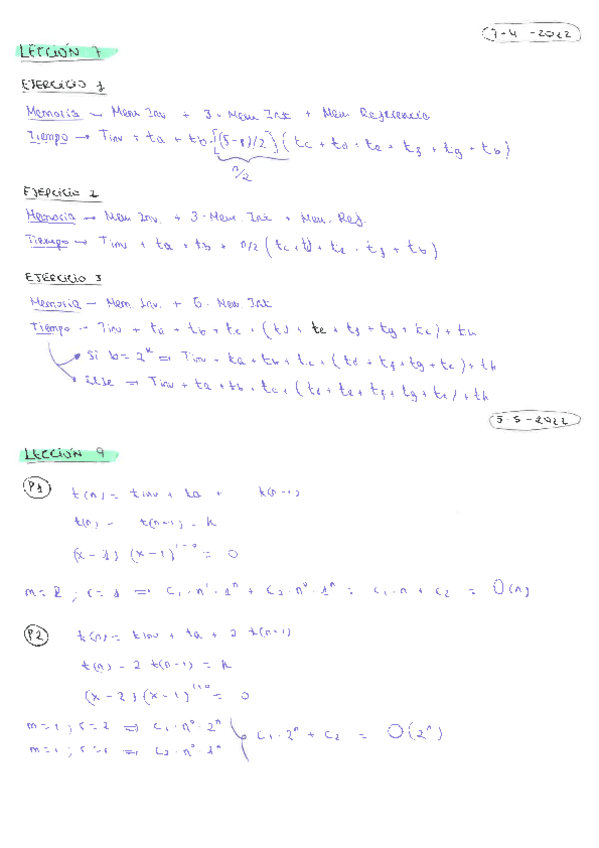 7-4-2022
LECCIÓN 7
EJERCICIO 1
Memoria → Mem Inv + 3·Mem Int + Mem Referencia
Tiempo → Tinv + ta + tb·[(5-1)/2](tc + td + te + tf + tg + tb)
n/2
EJERCICIO 2
Memoria → Mem Inv. + 3·Mem. Int + Mem. Ref.
Tiempo → Tinv + ta + tb + n/2 (tc + td + te + tf + tb)
EJERCICIO 3
Memoria → Mem Inv. + 6·Mem Int
Tiempo → Tinv + ta + tb + tc + (td + te + tf + tg + tc) + th
Si b = 2^k ⇒ Tinv + ta + tb + tc + (td + tf + tg + tc) + th
Else ⇒ Tinv + ta + tb + tc + (td + te + tf + tg + tc) + th
5-5-2022
LECCIÓN 9
P1 t(n) = tinv + ta + t(n-1)
t(n) - t(n-1) = k
(x-1)(x-1)^{1+0} = 0
m=2 ; r=1 ⇒ C1·n^1·1^n + C2·n^0·1^n = C1·n + C2 = O(n)
P2 t(n) = tinv + ta + 2 t(n-1)
t(n) - 2 t(n-1) = k
(x-2)(x-1)^{1+0} = 0
m=1 ; r=2 ⇒ C1·n^0·2^n
m=1 ; r=1 ⇒ C2·n^0·1^n
C1·2^n + C2 = O(2^n)